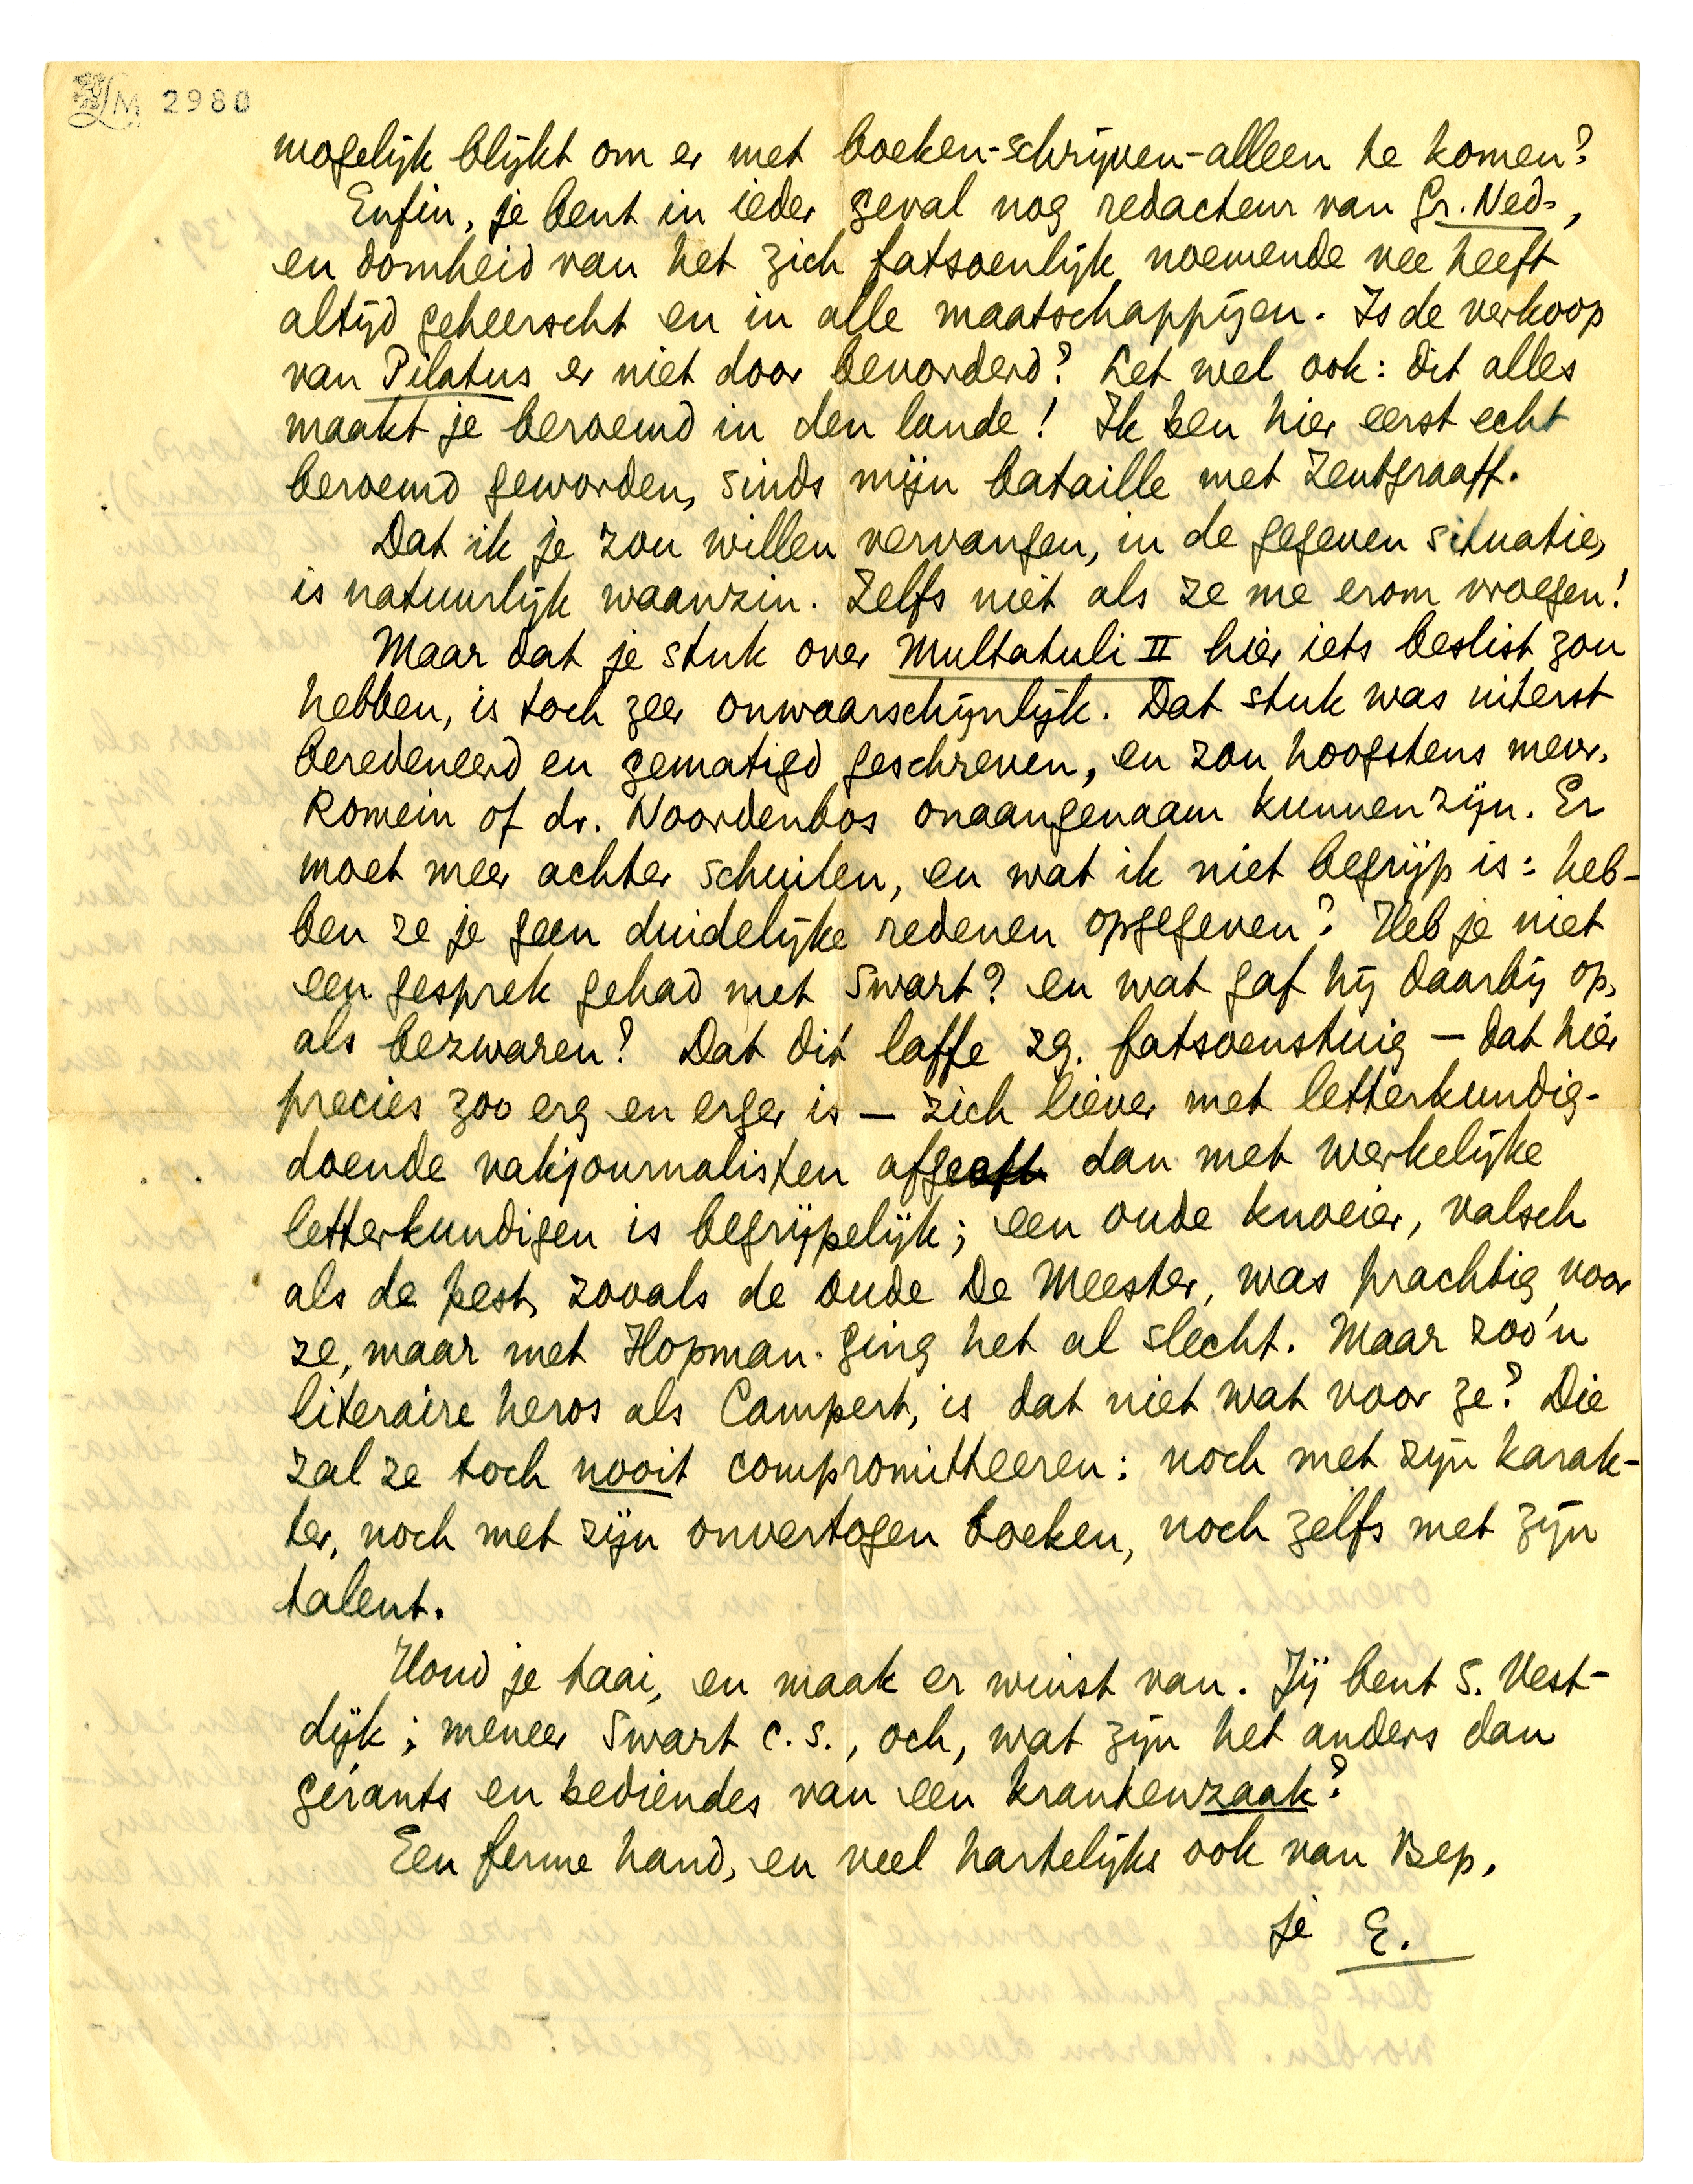 LM 2980
mogelijk blijkt om er met boeken-schrijven-alleen te komen?
Enfin, je bent in ieder geval nog redacteur van Gr. Ned.,
en domheid van het zich fatsoenlijk noemende vee heeft
altijd geheerscht en in alle maatschappijen. Is de verkoop
van Pilatus er niet door bevorderd? Let wel ook: dit alles
maakt je beroemd in den lande! Ik ben hier eerst echt
beroemd geworden, sinds mijn bataille met Zentgraaff.
Dat ik je zou willen vervangen, in de gegeven situatie,
is natuurlijk waanzin. Zelfs niet als ze me erom vroegen!
Maar dat je stuk over Multatuli II hier iets beslist zou
hebben, is toch zeer onwaarschijnlijk. Dat stuk was uiterst
beredeneerd en gematigd geschreven, en zou hoogstens mevr.
Romein of dr. Noordenbos onaangenaam kunnen zijn. Er
moet meer achter schuilen, en wat ik niet begrijp is: heb-
ben ze je geen duidelijke redenen opgegeven? Heb je niet
een gesprek gehad met Swart? en wat gaf hij daarbij op,
als bezwaren? Dat dit laffe zg. fatsoenstuig — dat hier
precies zoo erg en erger is — zich liever met letterkundig-
doende vakjournalisten afgeeft dan met werkelijke
letterkundigen is begrijpelijk; een oude knoeier, valsch
als de pest, zooals de oude De Meester, was prachtig voor
ze, maar met Hopman ging het al slecht. Maar zoo'n
literaire heros als Campert, is dat niet wat voor ze? Die
zal ze toch nooit compromitteeren: noch met zijn karak-
ter, noch met zijn onvertogen boeken, noch zelfs met zijn
talent.
Houd je taai, en maak er winst van. Jij bent S. Vest-
dijk; meneer Swart c.s., och, wat zijn het anders dan
gérants en bediendes van een krantenzaak?
Een ferme hand, en veel hartelijks ook van Bep,
je E.